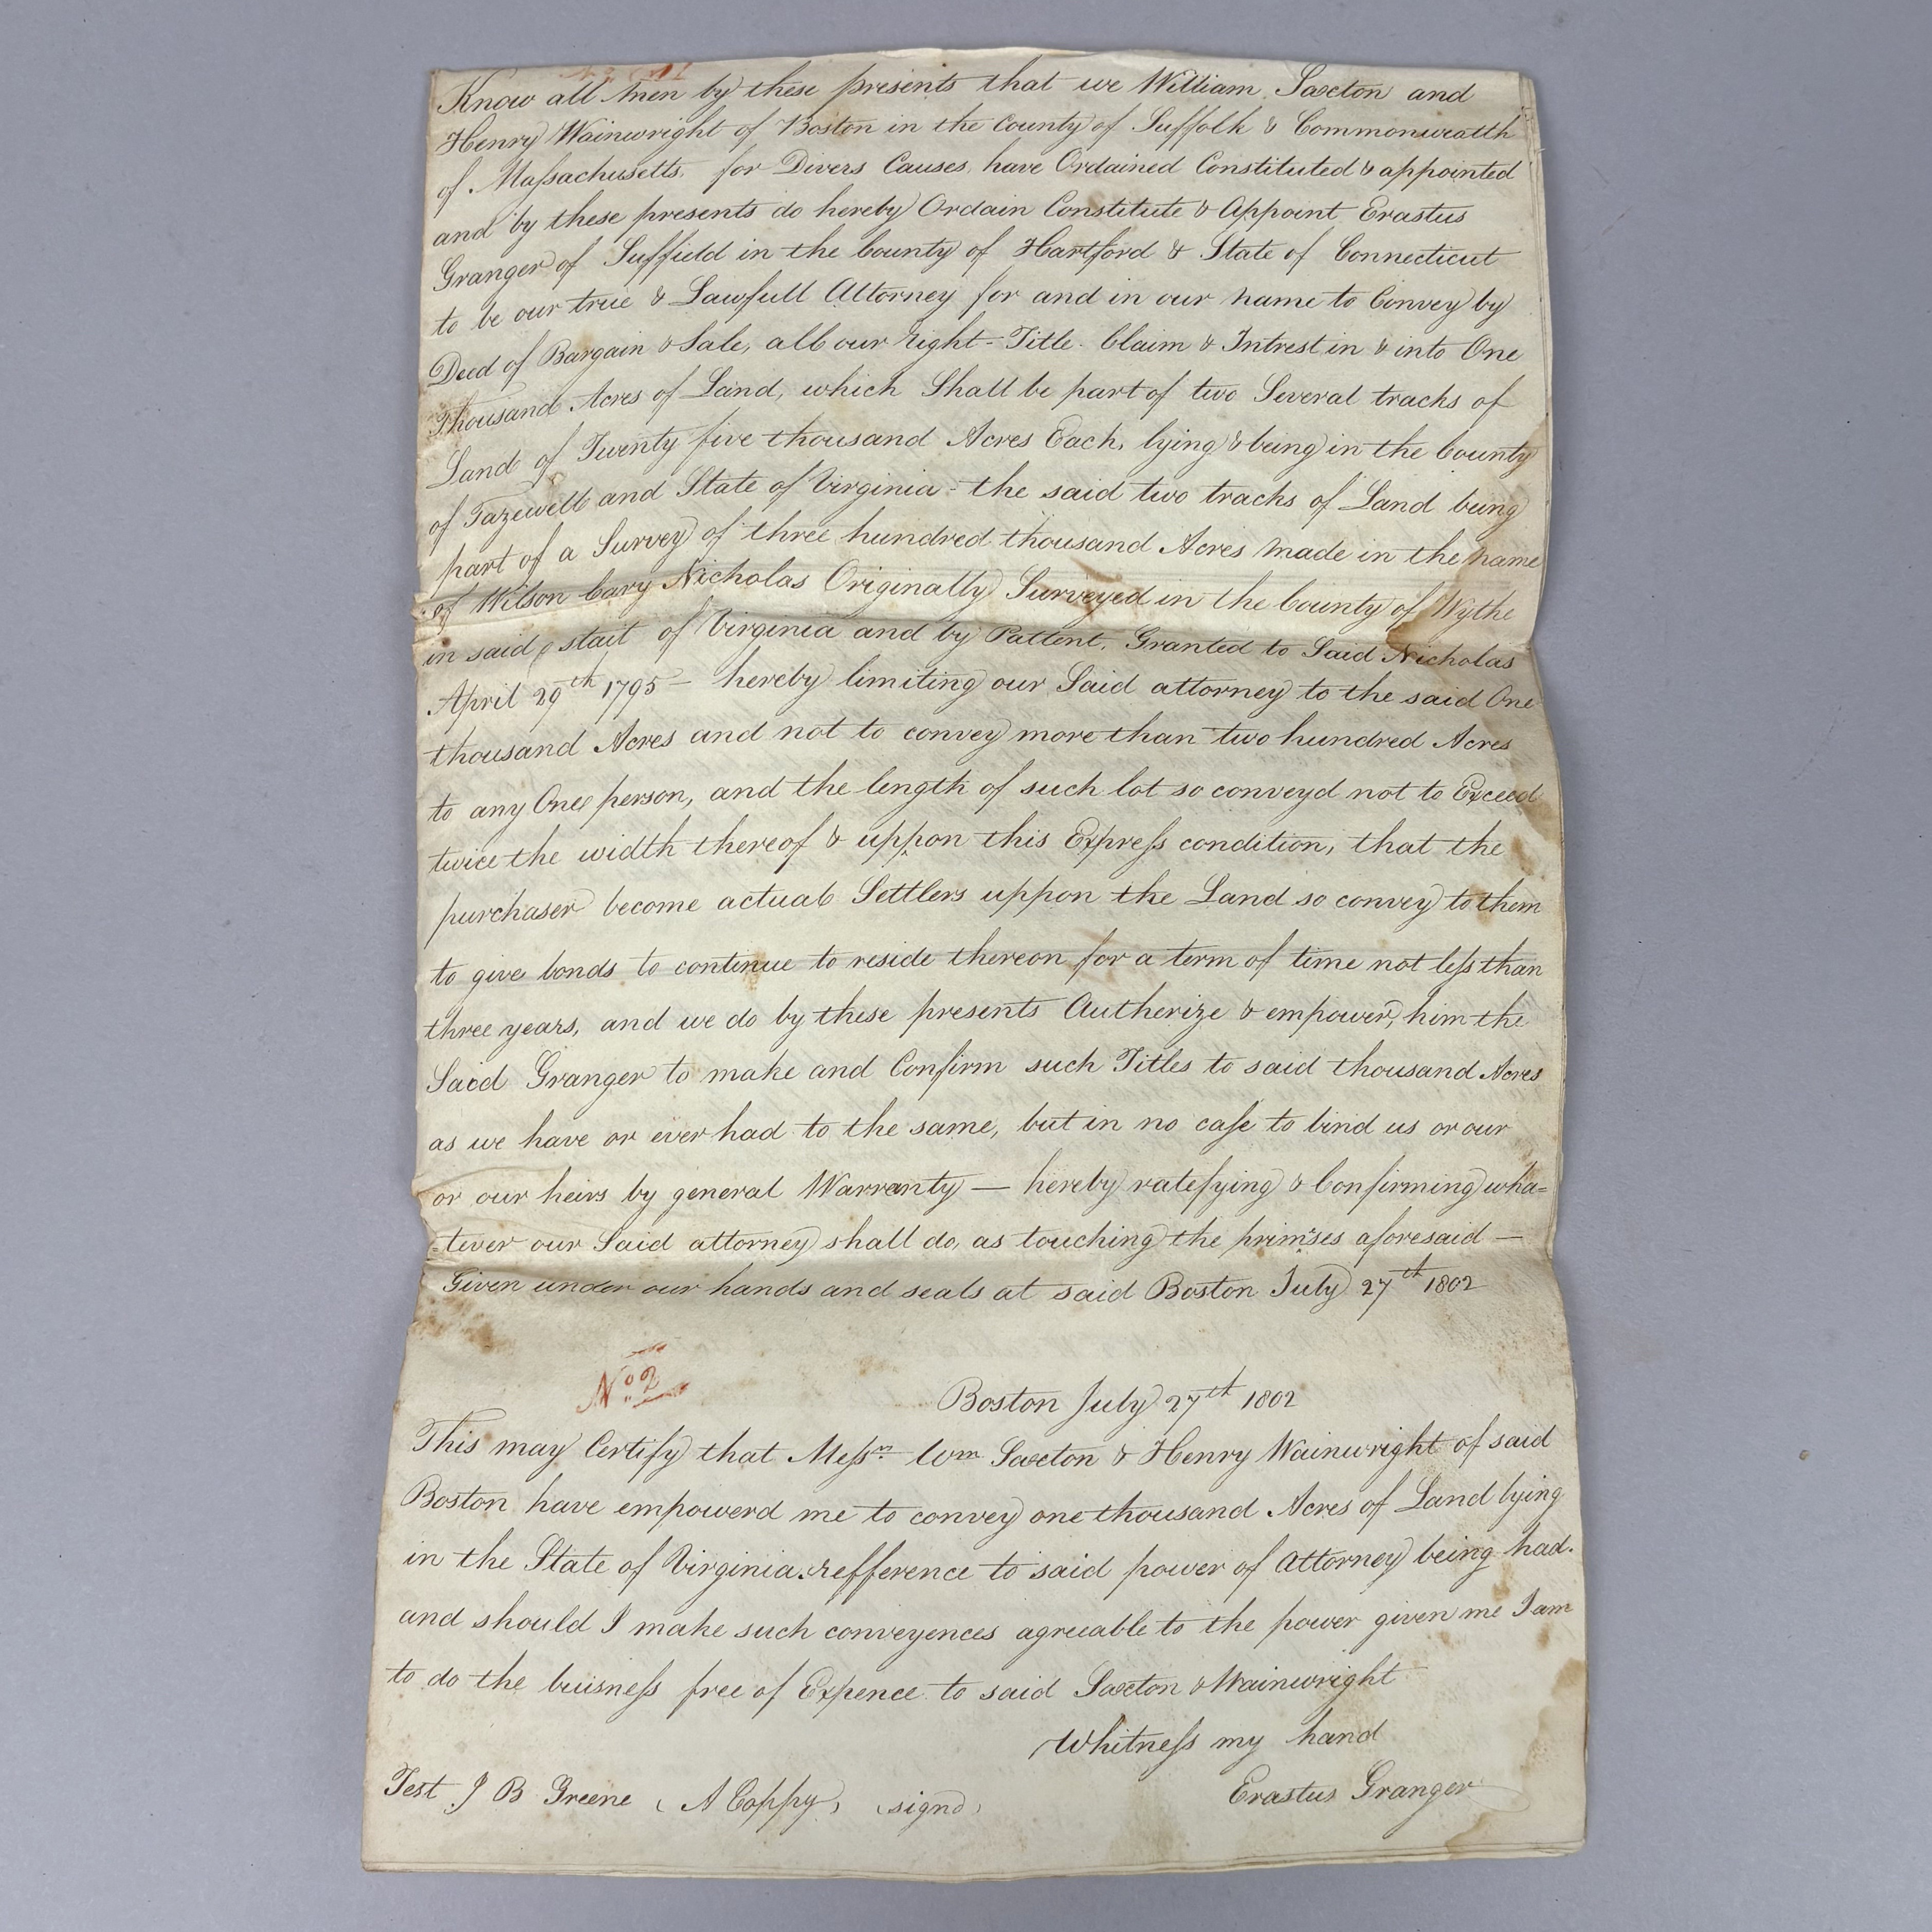 Know all Men by these presents that we William Saxton and
Henry Wainwright of Boston in the County of Suffolk & Commonwealth
of Maſsachusetts. for Divers Causes, have Ordained Constituted & appointed
and by these presents do hereby Ordain Constitute & Appoint Erastus
Granger of Suffield in the County of Hartford & State of Connecticut
to be our true & Lawfull Attorney for and in our name to Convey by
Deed of Bargain & Sale, all our right - Title - Claim & Intrest in & into One
Thousand Acres of Land, which Shall be part of two Several tracks of
Land of Twenty five thousand Acres Each, lying & being in the County
of Tazewell and State of Virginia - the said two tracks of Land being
part of a Survey of three hundred thousand Acres made in the name
of Wilson Cary Nicholas Originally Surveyed in the County of Wythe
in said stait of Virginia and by Pattent. Granted to Said Nicholas
April 29th 1795 - hereby limiting our Said attorney to the said One
thousand Acres and not to convey more than two hundred Acres
to any One person, and the length of such lot so conveyd not to Exceed
twice the width thereof & uppon this Expreſs condition, that the
purchaser become actual Settlers uppon the Land so convey to them
to give bonds to continue to reside thereon for a term of time not leſs than
three years, and we do by these presents Autherize & empower, him the
Said Granger to make and Confirm such Titles to said thousand Acres
as we have or ever had to the same, but in no caſe to bind us or our
or our heirs by general Warranty — hereby ratefying & Confirming wha=
=tever our Said attorney shall do, as touching the primises aforesaid —
Given under our hands and seals at said Boston July 27th 1802
No 2
Boston July 27th 1802
This may Certify that Meſsrs Wm Saxton & Henry Wainwright of said
Boston have empowerd me to convey one thousand Acres of Land lying
in the State of Virginia. refference to said power of Attorney being had.
and should I make such conveyences agreeable to the power given me I am
to do the buisneſs free of Expence to said Saxton & Wainwright
Whitneſs my hand
Test J B Greene (A Coppy) (signd) Erastus Granger